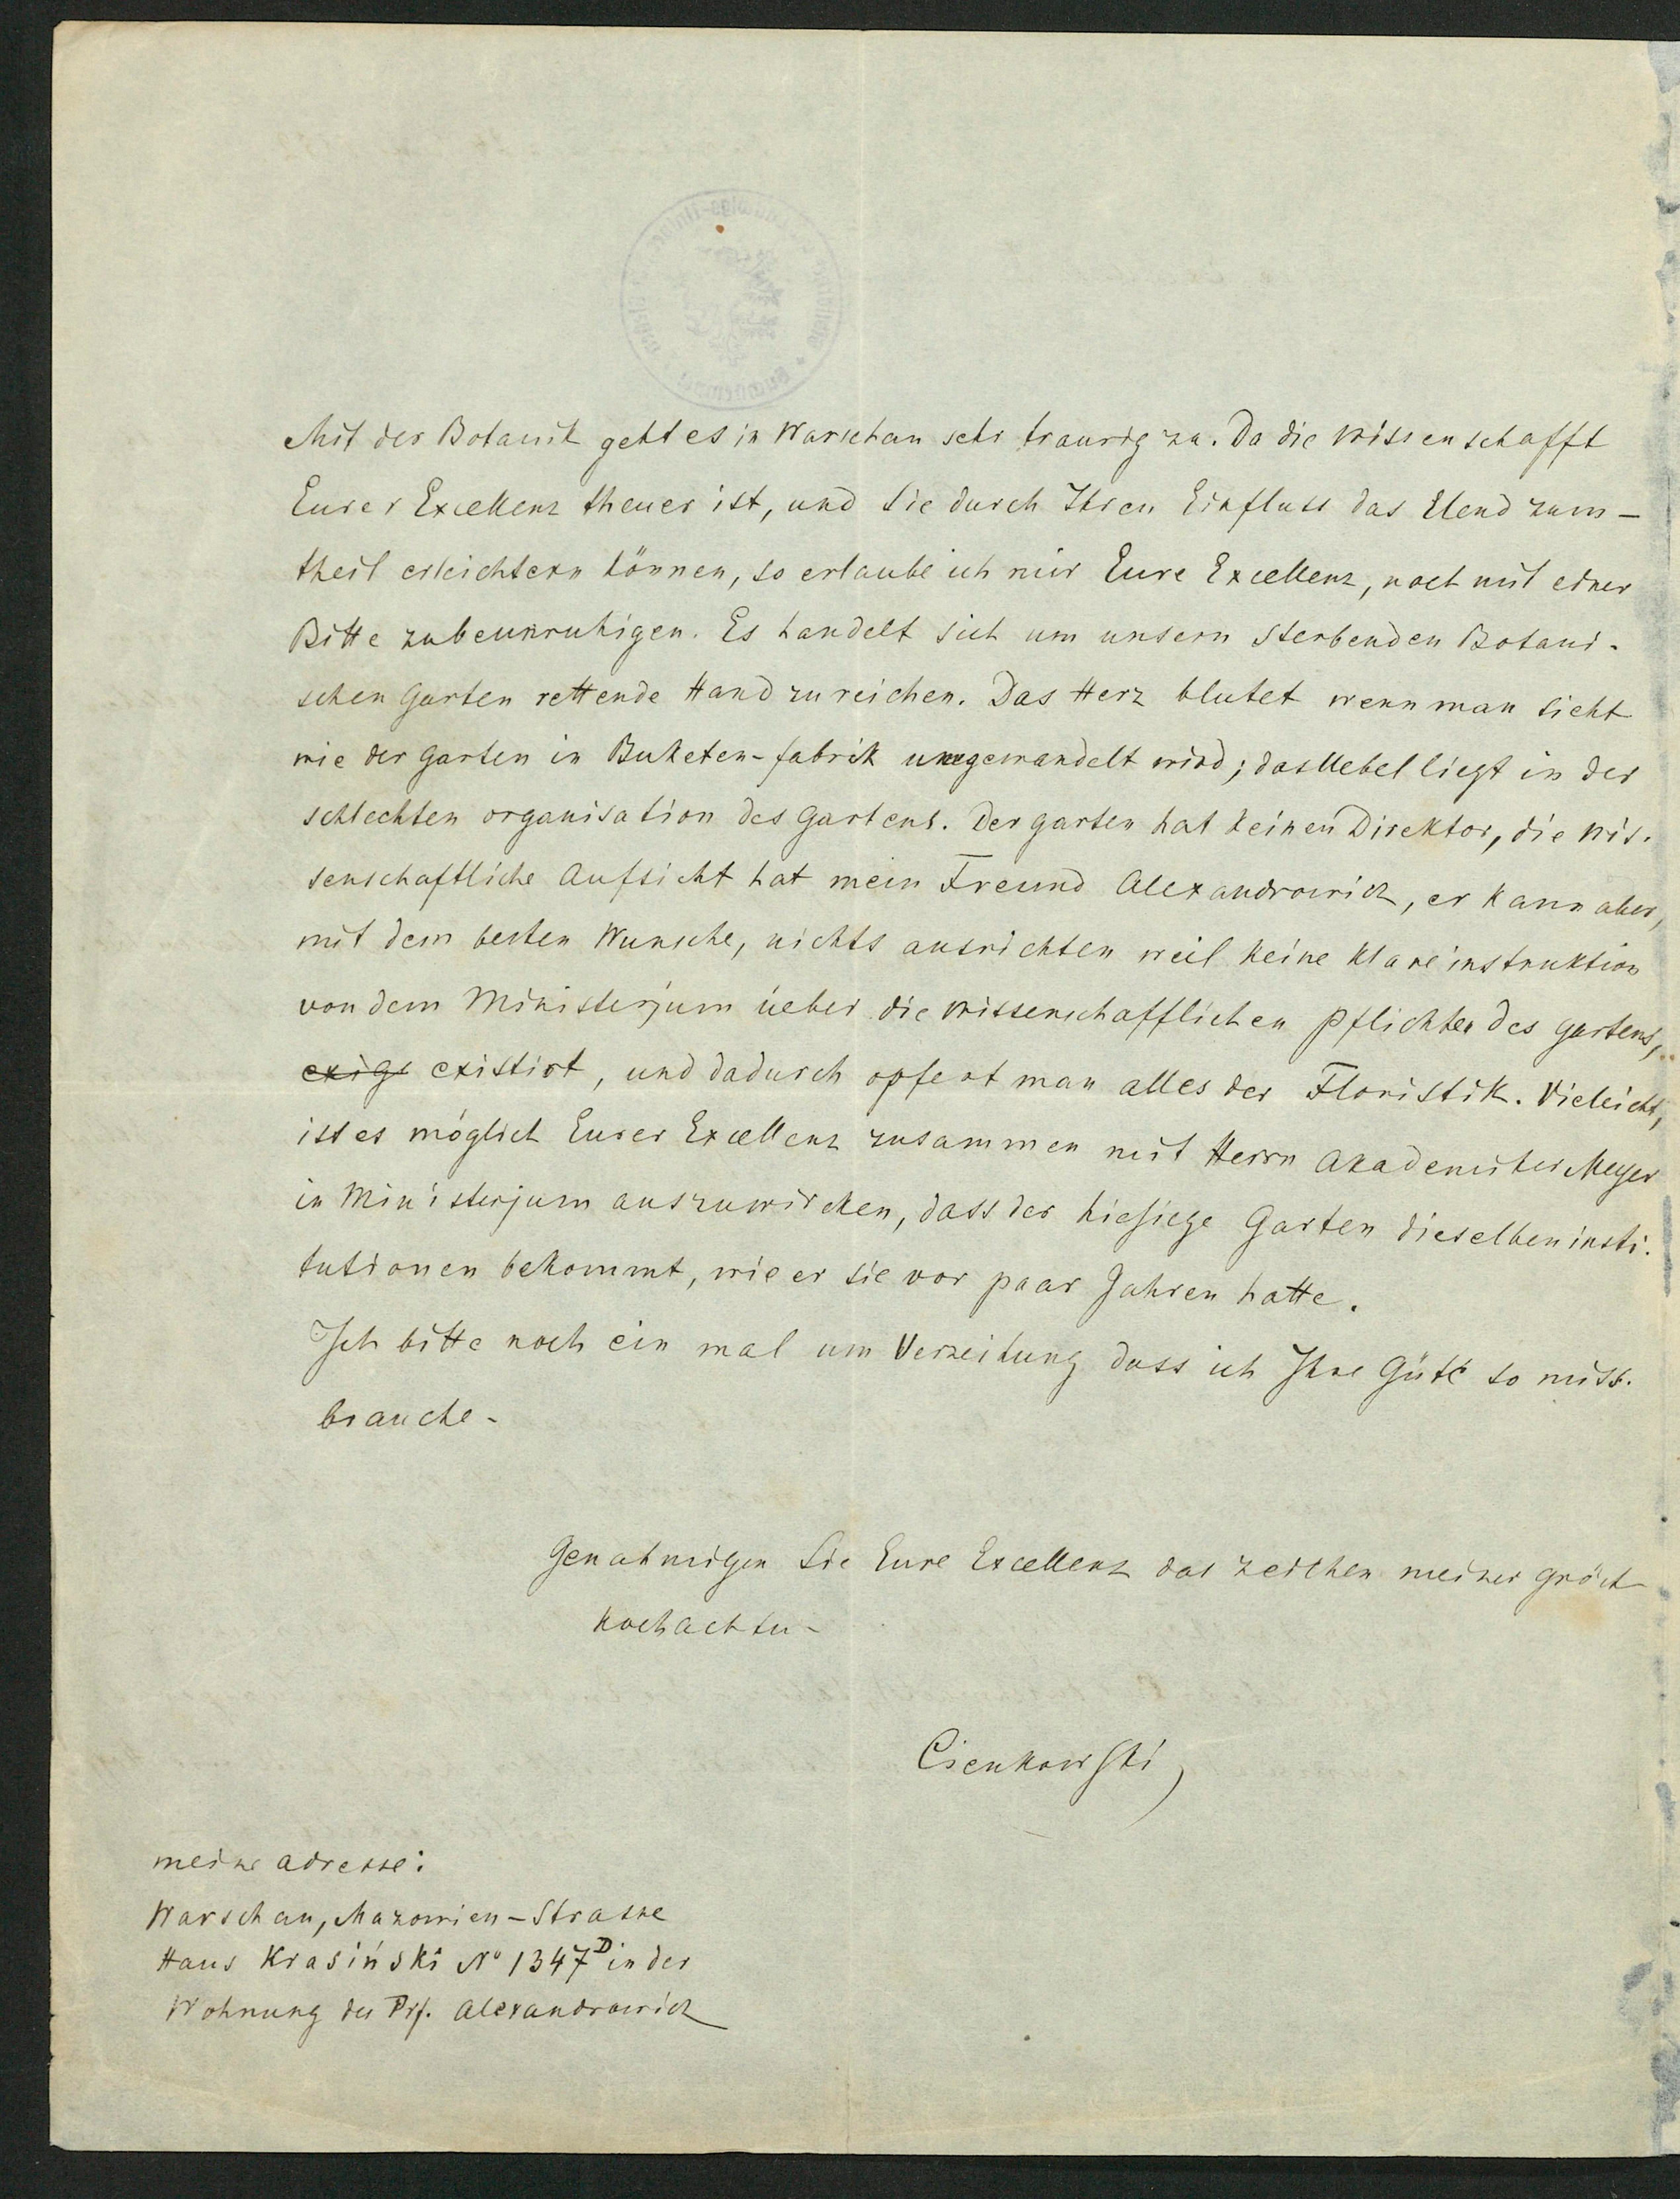 Mit der Botanik geht es in Warschau sehr traurig zu. Da die Wissenschafft
Eurer Excellenz theuer ist, und Sie durch Ihren Einfluss das Elend zum-
theil erleichtern können, so erlaube ich mir Eure Excellenz, noch mit einer
Bitte zubeunruhigen. Es handelt sich um unsern sterbenden Botani-
schen Garten rettende Hand zu reichen. Das Herz blutet wenn man sieht
wie der Garten in Buketen-fabrik umgewandelt wird; das Uebel liegt in der
schlechten organisation des Gartens. Der garten hat keinen Direktor, die wis-
senschaftliche Aufsicht hat mein Freund Alexandrowicz, er kann aber,
mit dem besten Wunsche, nichts ausrichten weil keine klare instruktion
von dem Ministerjum üeber die wissenschafflichen pflichten des gartens,
exigs existirt, und dadurch opfert man alles der Floristik. Vieleicht,
ist es möglich Eurer Excellenz zusammen mit Herrn Akademiker Meyer
in Ministerjum auszuwircken, dass der hiesiege Garten dieselben insti-
tutionen bekommt, wie er sie vor paar Jahren hatte.
Ich bitte noch ein mal um Verzeihung dass ich Ihre Güte so miss-
brauche-
Genahmigen Sie Eure Excellenz das zeichen meiner gröst
hochachtu-
Cienkowski
meine adresse:
Warschau, Mazowien-Strasse
Haus Krasiński No 1347D in der
Wohnung des Prf. Alexandrowicz